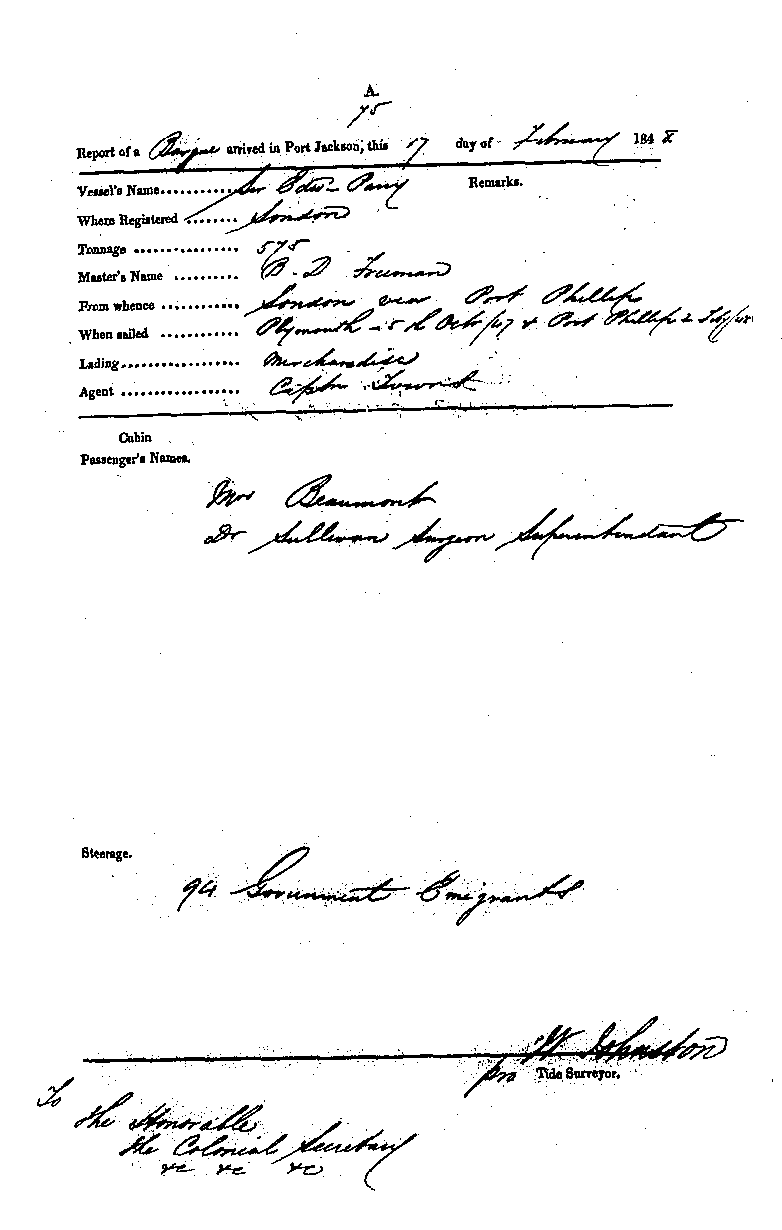 A.
75
Report of a Barque arrived in Port Jackson, this 17 day of February 184 8
Vessel's Name........... Sir Edwd Parry Remarks.
Where Registered ........ London
Tonnage ................ 575
Master's Name .......... B. D Freeman
From whence ............ London via Port Phillip
When sailed ............ Plymouth 5th Octr/47 & Port Phillip 2 Feby/48
Lading.................. Merchandise
Agent .................. Captn Towns
Cabin
Passenger's Names.
Mrs Beaumont
Dr Sullivan Surgeon Superintendant
Steerage.
Government Emigrants
W Johnston
pro Tide Surveyor.
To
the Honorable
the Colonial Secretary
&c &c &c